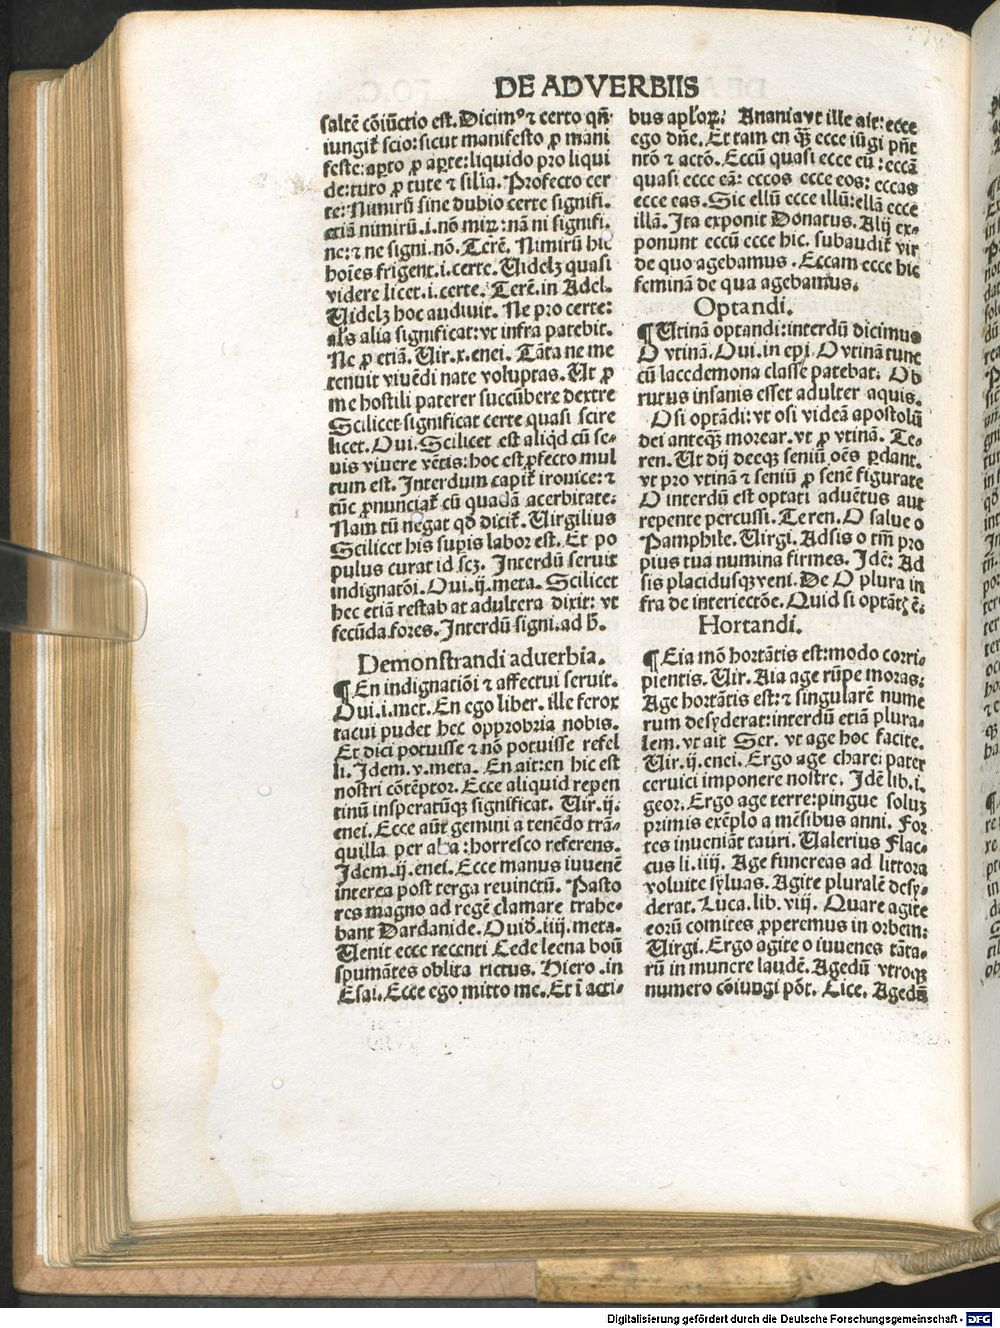 DE ADVERBIIS
saltē cōiūctio est. Dicimꝰ ⁊ certo qñ
iungit᷑ scio: sicut manifesto ꝓ mani
feste: aꝑto ꝓ aꝑte: liquido pro liqui
de: tuto ꝓ tute ⁊ sil'ia. Profecto cer
te: Nimirū sine dubio certe signifi.
etiā nimirū .i. nō mirū: nā ni signifi.
ne: ⁊ ne signi. nō. Terē. Nimirū hic
hoīes frigent .i. certe. Uidelꝫ quasi
videre licet .i. certe. Terē. in Adel.
Uidelꝫ hoc audiuit. Ne pro certe:
al's alia significat: vt infra patebit.
Ne ꝓ etiā. Uir. x. enei. Tāta ne me
tenuit viuēdi nate voluptas. Ut ꝓ
me hostili paterer succūbere dextre
Scilicet significat certe quasi scire
licet. Oui. Scilicet est aliqd cū se-
uis viuere vētis: hoc est ꝓfecto mul
tum est. Interdum capit᷑ ironice: ⁊
tūc ꝓnunciat᷑ cū quadā acerbitate:
Nam tū negat qd̄ dicit᷑. Uirgilius
Scilicet his supis labor est. Et po
pulus curat id scꝫ. Interdū seruit
indignatōi. Oui. ij. meta. Scilicet
hec etiā restabat adultera dixit: vt
fecūda fores. Interdū signi. ad ħ.
Demonstrandi aduerbia.
¶ En indignatiōi ⁊ affectui seruit.
Oui. i. met. En ego liber. ille ferox
tacui pudet hec opprobria nobis.
Et dici potuisse ⁊ nō potuisse refel
li. Idem. v. meta. En ait: en hic est
nostri cōtēptor. Ecce aliquid repen
tinū insperatūqꝫ significat. Uir. ij.
enei. Ecce aūt gemini a tenēdo trā-
quilla per alta: horresco referens.
Idem. ij. enei. Ecce manus iuuenē
interea post terga reuinctū. Pasto
res magno ad regē clamare trahe-
bant Dardanide. Ouid. iiij. meta.
Uenit ecce recenti Cede leena boū
spumātes oblita rictus. Hiero. in
Esai. Ecce ego mitto me. Et ī acti-
bus apl'oꝝ. Ananiavt ille ait: ecce
ego dn̄e. Et tam en qꝫ ecce iūgi pn̄t
ntō ⁊ actō. Eccū quasi ecce eū: eccā
quasi ecce eā: eccos ecce eos: eccas
ecce eas. Sic ellū ecce illū: ellā ecce
illā. Ita exponit Donatus. Alij ex-
ponunt eccū ecce hic. subaudit᷑ vir
de quo agebamus. Eccam ecce hic
feminā de qua agebamus.
Optandi.
¶ Utinā optandi: interdū dicimus
O vtinā. Oui. in epi. O vtinā tunc
cū lacedemona classe patebat. Ob
rutus insanis esset adulter aquis.
Osi optādi: vt osi videā apostolū
dei anteqꝫ morear. vt ꝓ vtinā. Te-
ren. Ut dij deeqꝫ seniū oēs ꝑdant.
vt pro vtinā ⁊ seniū ꝓ senē figurate
O interdū est optati aduētus aut
repente percussi. Teren. O salue o
Pamphile. Uirgi. Adsis o tm̄ pro
pius tua numina firmes. Idē: Ad
sis placidusqꝫ veni. De O plura in
fra de interiectōe. Quid si optātꝭ ē.
Hortandi.
¶ Eia mō hortātis est: modo corri-
pientis. Uir. Aia age rūpe moras.
Age hortātis est: ⁊ singularē nume
rum desyderat: interdū etiā plura-
lem. vt ait Ser. vt age hoc facite.
Uir. ij. enei. Ergo age chare pater
ceruici imponere nostre. Idē lib. i.
geor. Ergo age terre: pingue soluꝫ
primis exēplo a mēsibus anni. For
tes inueniāt tauri. Ualerius Flac-
cus li. iiij. Age funereas ad littora
voluite syluas. Agite pluralē desy-
derat. Luca. lib. viij. Quare agite
eorū comites ꝓperemus in orbem:
Uirgi. Ergo agite o iuuenes tāta-
rū in munere laudē. Agedū vtroqꝫ
numero cōiungi pōt. Lice. Agedū
Digitalisierung gefördert durch die Deutsche Forschungsgemeinschaft - DFG